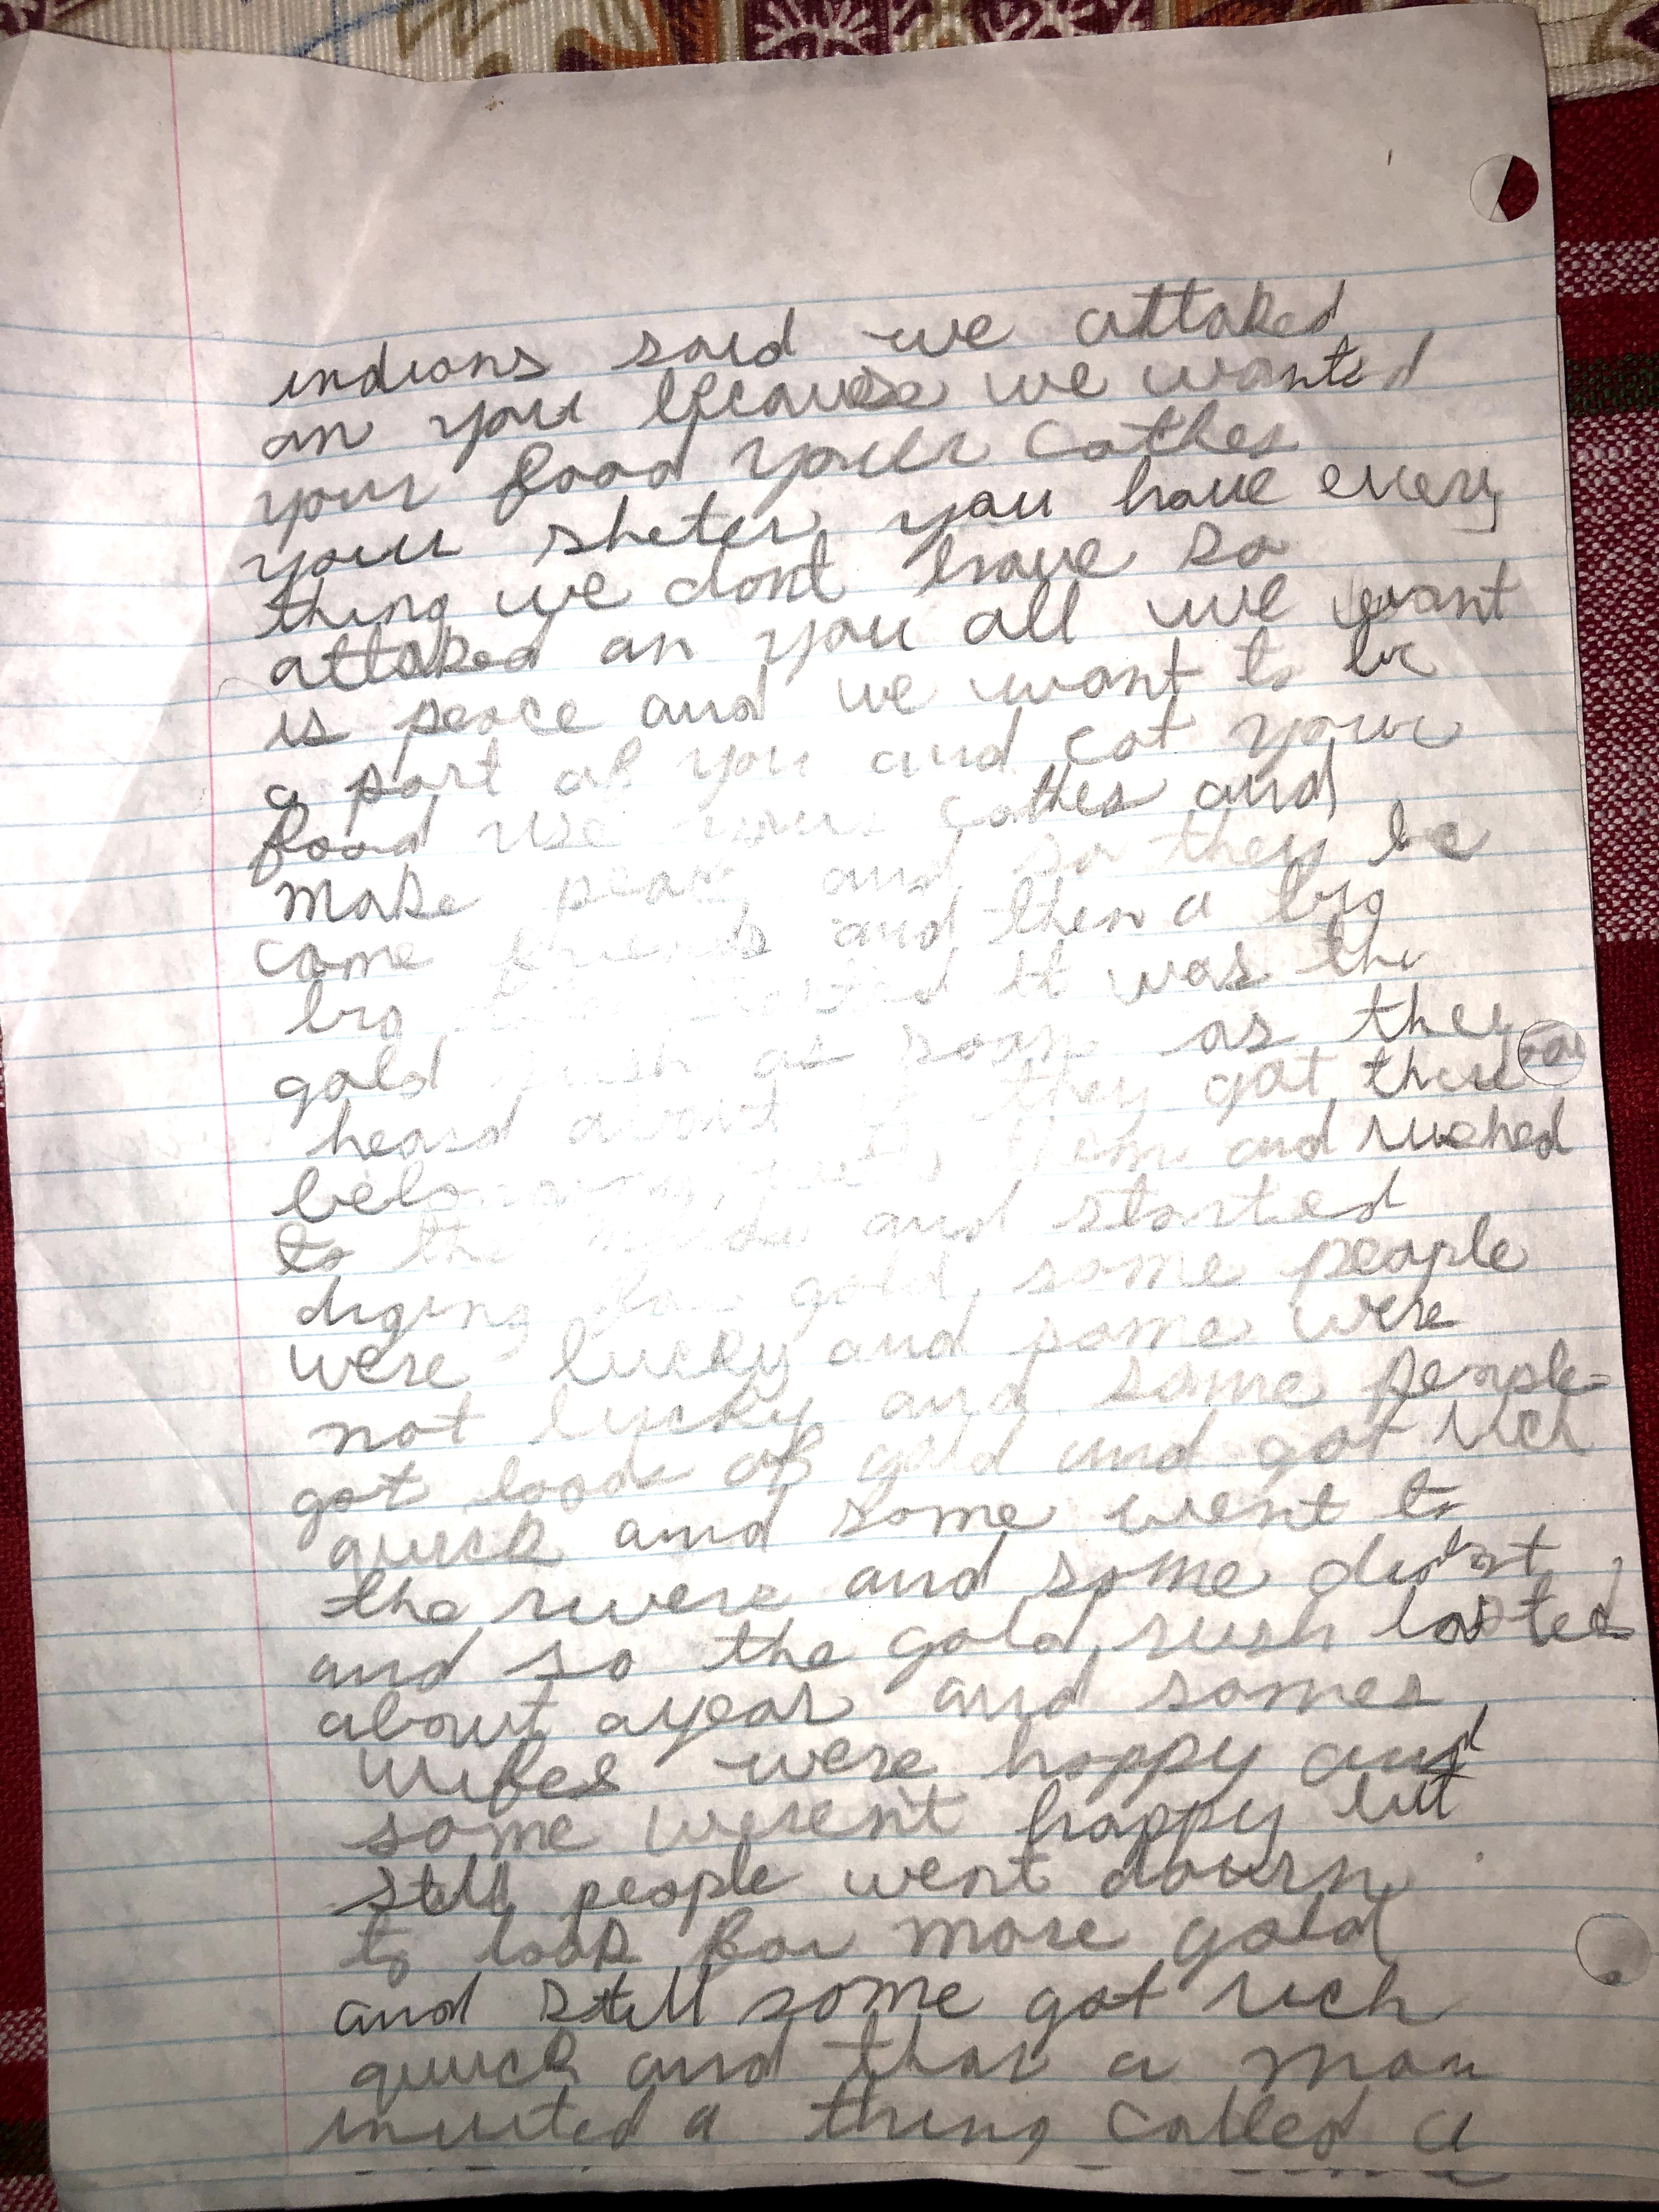 indians said we attaked
on you because we wanted
your food your cothes
your sheter you have every
thing we dont have so
attaked on you all we want
is peace and we want to be
a part of you and eat your
food use your cothes and
make peace and so they be
came friends and then a big
big started it was the
gold rush as soon as they
heard about it they got there
belongings, with them and rushed
to the and started
diging for gold some people
were lucky and some were
not lucky and some people
got loads of gold and got rich
quick and some went to
the rivere and some didn't
and so the gold rush lasted
about a year and somes
wifes were happy and
some weren't happy but
still people went down
to look for more gold
and still some got rich
quick and than a man
invited a thing called a